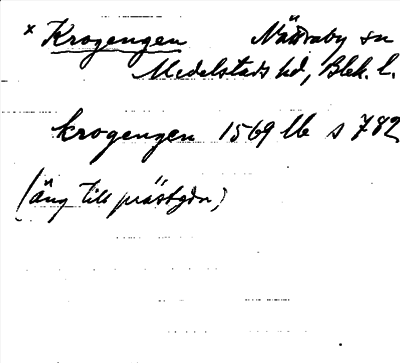 x Krogengen Nättraby sn
Medelstads hd, Blek. l.
krogengen 1569 lb s 782
(äng till prästgdn)